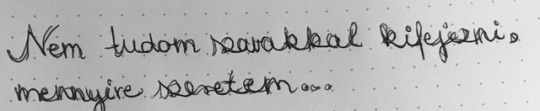 Nem tudom szavakkal kifejezni,
mennyire szeretem...